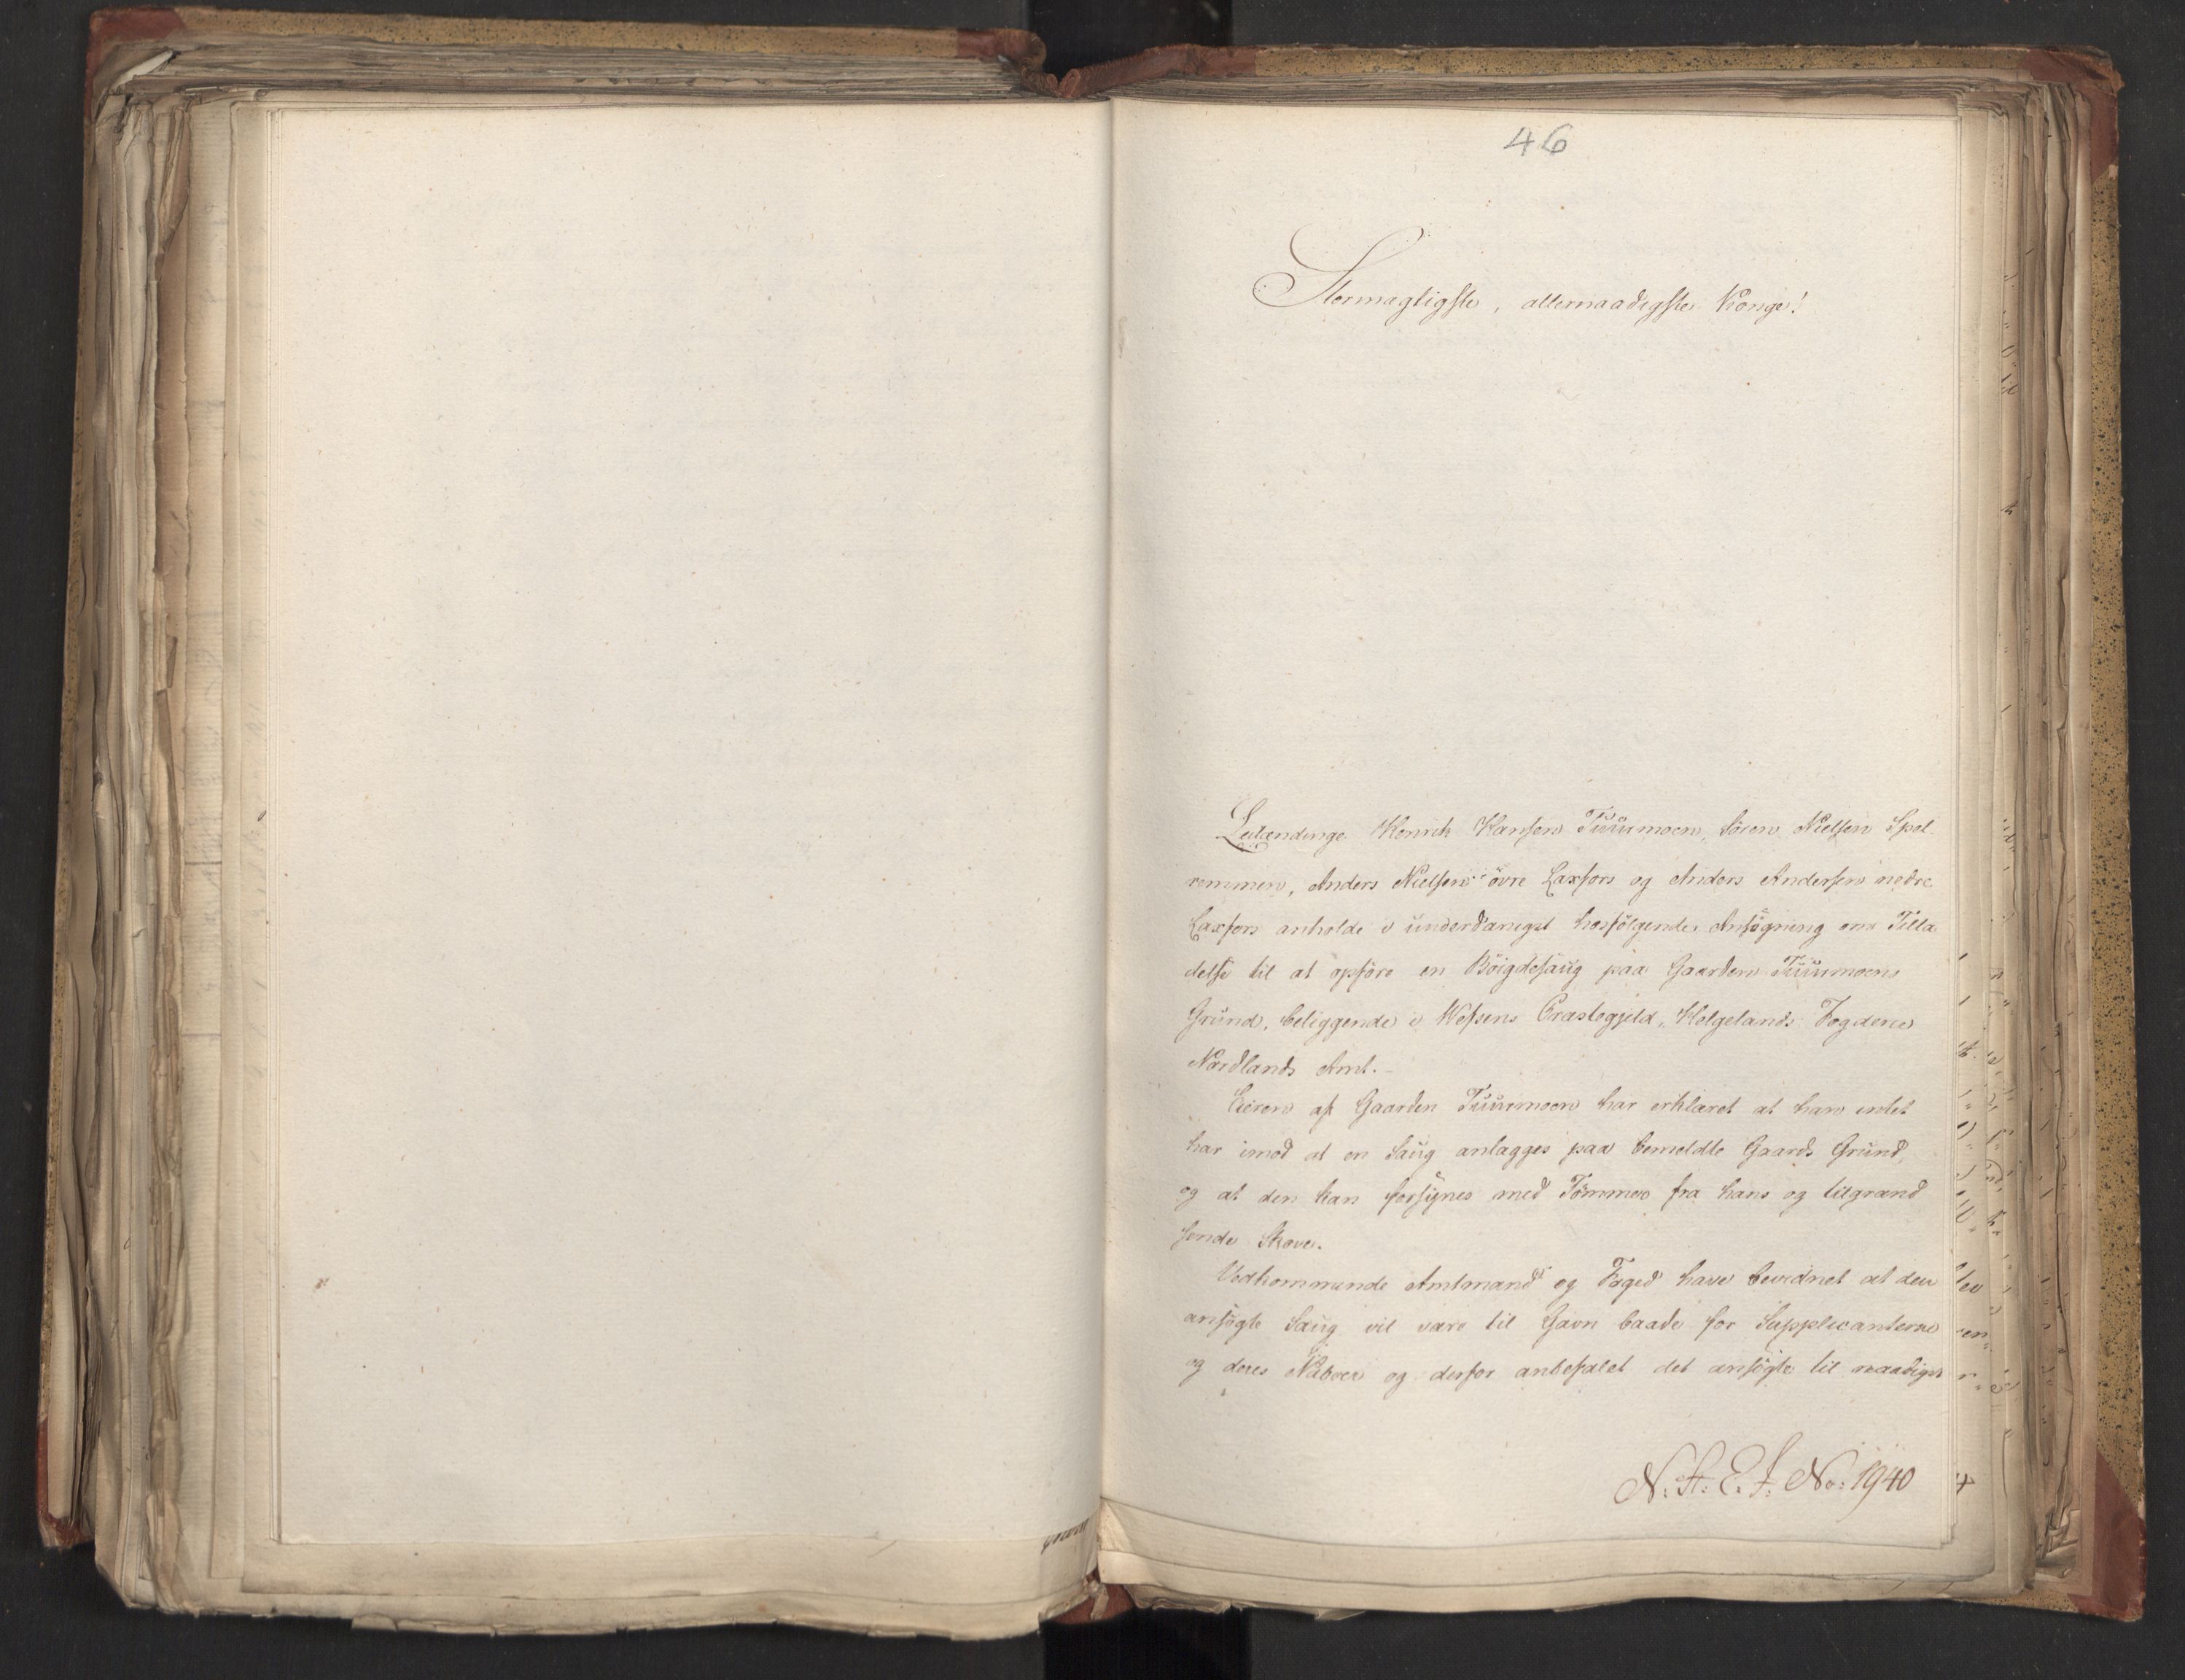 46
Stormægtigste, allernaadigste Konge!
Leilændinge Henrik Hansen Tuurmoen, Sören Nielsen Spel-
remmen, Anders Nielsen övre Laxfors og Anders Andersen nedre
Laxfors anholde i underdanigst hosfölgende Ansögning om Tilla
delse til at opföre en Böigdesaug paa Gaarden Tuurmoens
Grund, beliggende i Wefsens Præstegjeld, Helgelands Fogderie
Nordlands Amt.-
Eieren af Gaarden Tuurmoen har erklæret at han intet
har imod at en Saug anlægges paa bemeldte Gaards Grund,
og at den kan forsÿnes med Tömmer fra hans og tilgrænd
sende Skove.
Vedkommende Amtmand og Foged have bevidnet at den
ansögte Saug vil være til Gavn baade for Supplicanterne
og deres Naboer og derfor anbefalet det ansögte til naadigst
N: A: E: f: No: 1940